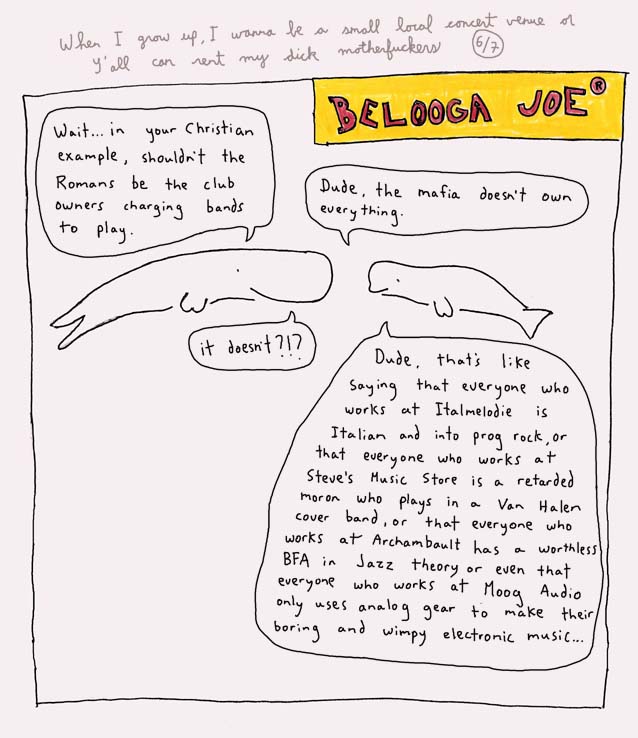 When I grow up, I wanna be a small local concert venue or
Y'all can rent my dick motherfuckers 6/7
BELOOGA JOE®
Wait... in your Christian
example, shouldn't the
Romans be the club
owners charging bands
to play.
Dude, the mafia doesn't own
everything.
it doesn't?!?
Dude, that's like
saying that everyone who
works at Italmelodie is
Italian and into prog rock, or
that everyone who works at
Steve's Music Store is a retarded
moron who plays in a Van Halen
cover band, or that everyone who
works at Archambault has a worthless
BFA in Jazz theory or even that
everyone who works at Moog Audio
only uses analog gear to make their
boring and wimpy electronic music...